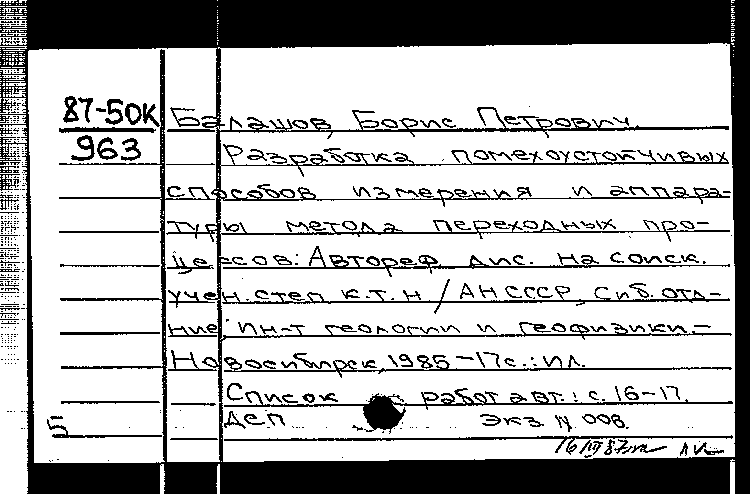 87-50К
963
Балашов, Борис Петрович
Разработка помехоустойчивых
способов измерения и аппара-
туры метода переходных про-
цессов: Автореф. дис. на соиск.
учен. степ. к.т.н / АН СССР, Сиб. отд-
ние, ин-т геологии и геофизики.-
Новосибирск, 1985-17с.: ил.
Список работ авт.: с. 16-17.
Деп Экз N 008
5
16 III 87